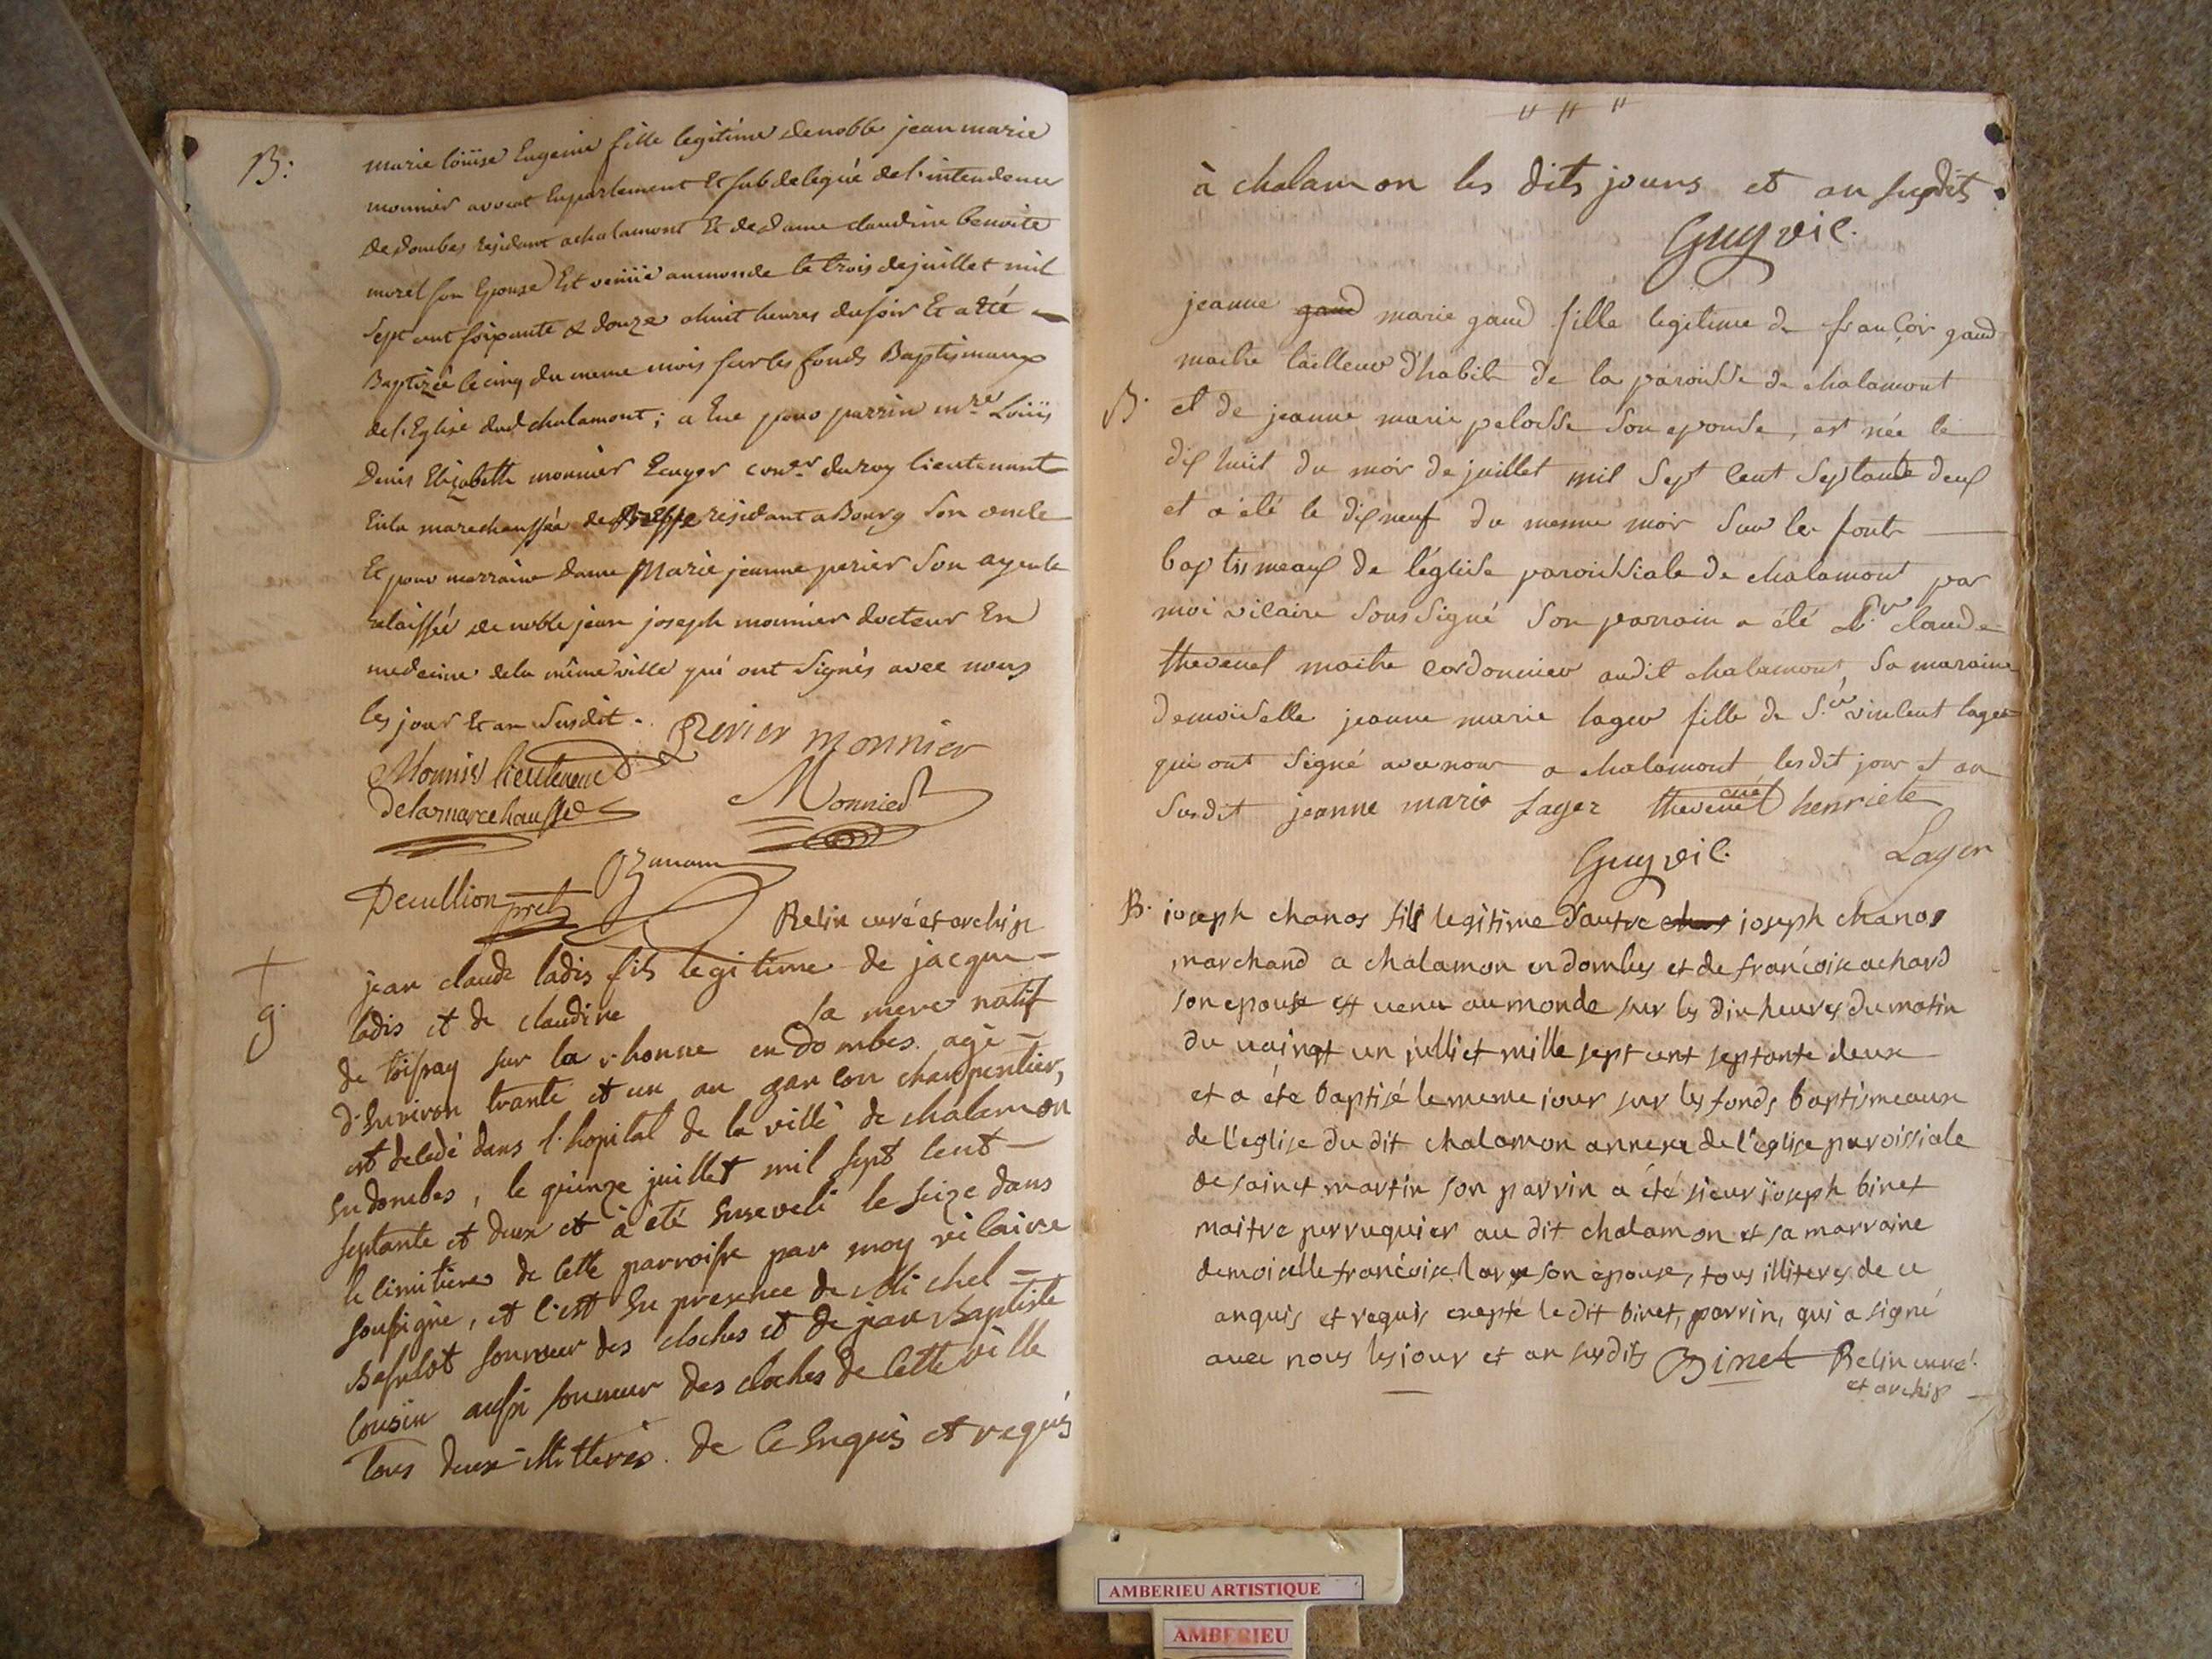 B: marie loüise Eugenie fille legitime de noble jean marie
monnier avocat En parlement Et subdelegué de l'intendence
de dombes residant a chalamont Et de dame claudine benoite
morel son Epouse Est venüe au monde le trois de juillet mil
sept cent soixante & douze a huit heures du soir Et a été
Baptizée le cinq du meme mois sur les fonds Baptismaux
de l'Eglise dud chalamont ; a Eue pour parrin mre Loüis
Denis Elizabeth monnier Ecuyer coner du roy lieutenant
En la marechaussée de Bresse residant a Bourg son oncle
Et pour marraine dame Marie jeanne perier Son ayeule
relaissée de noble jean joseph monnier docteur En
medecine de la même ville qui ont Signés avec nous
les jour Et an Susdit.
Perier monnier
Monnier lieutenent
de la marechaussee
Monnier
Decullion
Relin curé et archip
+
g. jean claude ladis fils legitime de jacque
ladis et de claudine sa mere natif
de toissay sur la rhonne en dombes agé
d'Environ trante et un an garcon charpentier,
est decedé dans l'hopital de la ville de chalamon
En dombes, le quinze juillet mil sept cent
septante et deux et à été Enseveli le seize dans
le cimitiere de cette parroisse par moy vicaire
soussigné, et c'est En presence de Michel
sonneur des cloches et de jean Baptiste
cousin aussi sonneur des cloches de cette ville
tous deux illitterés de ce Enquis et requis
" " "
à chalamon les dits jours et an susdits.
Guy vic.
jeanne gand marie gand fille legitime de françois gand
maitre tailleur d'habit de la paroisse de chalamont
B. et de jeanne marie pelosse son epouse, est née le
dix huit du mois de juillet mil Sept Cent Septante deux
et a été le dix neuf du meme mois sur les fonts
baptismeaux de l'église paroissiale de chalamont par
moi vicaire sous signé Son parrain a été Sr claude
thevenet maitre cordonnier audit chalamont, sa maraine
demoiselle jeanne marie lager fille de Sr vincent lager
qui ont signé avec nous a chalamont lesdit jour et an
Susdit jeanne marie Lager thevenet henriete
Guy vic. Lager
B. joseph chanas fils legitime d'autre chas joseph chanas
marchand a chalamon en dombes et de francoise achard
son epouse est venu au monde sur les dix heures du matin
du vaingt un julliet mille sept cent septante deux
et a été baptisé le meme jour sur les fonds baptismeaux
de l'eglise du dit chalamon annexe de l'eglise paroissiale
de sainct martin son parrin a été sieur joseph binet
maitre perruquier au dit chalamon et sa marraine
demoiselle francoise son epouse, tous illiteres de ce
anquis et requis exepté le dit binet, parrin, qui a signé
avec nous les jour et an susdits Binet Relin curé
et archip
AMBERIEU ARTISTIQUE
AMBERIEU